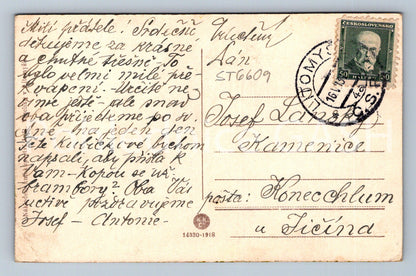 Milí přátelé! Srdečně
děkujeme za krásné
a chutné třešně. To
bylo velmi milé pře-
kvapení. Určitě ne-
víme ještě - ale snad
přijedeme po
na jeden den
Teté bychom
napsali, aby přišla k
Vám - Kopou se už
brambory? Oba Vás
uctivě pozdravujeme
Josef - Antonie -
Ctěný
Pán
ST6609
Josef
Kamenice
pošta: Konecchlum
u Jičína
ČESKOSLOVENSKO
50 50
LITOMYŠ
ČS
14330-1918